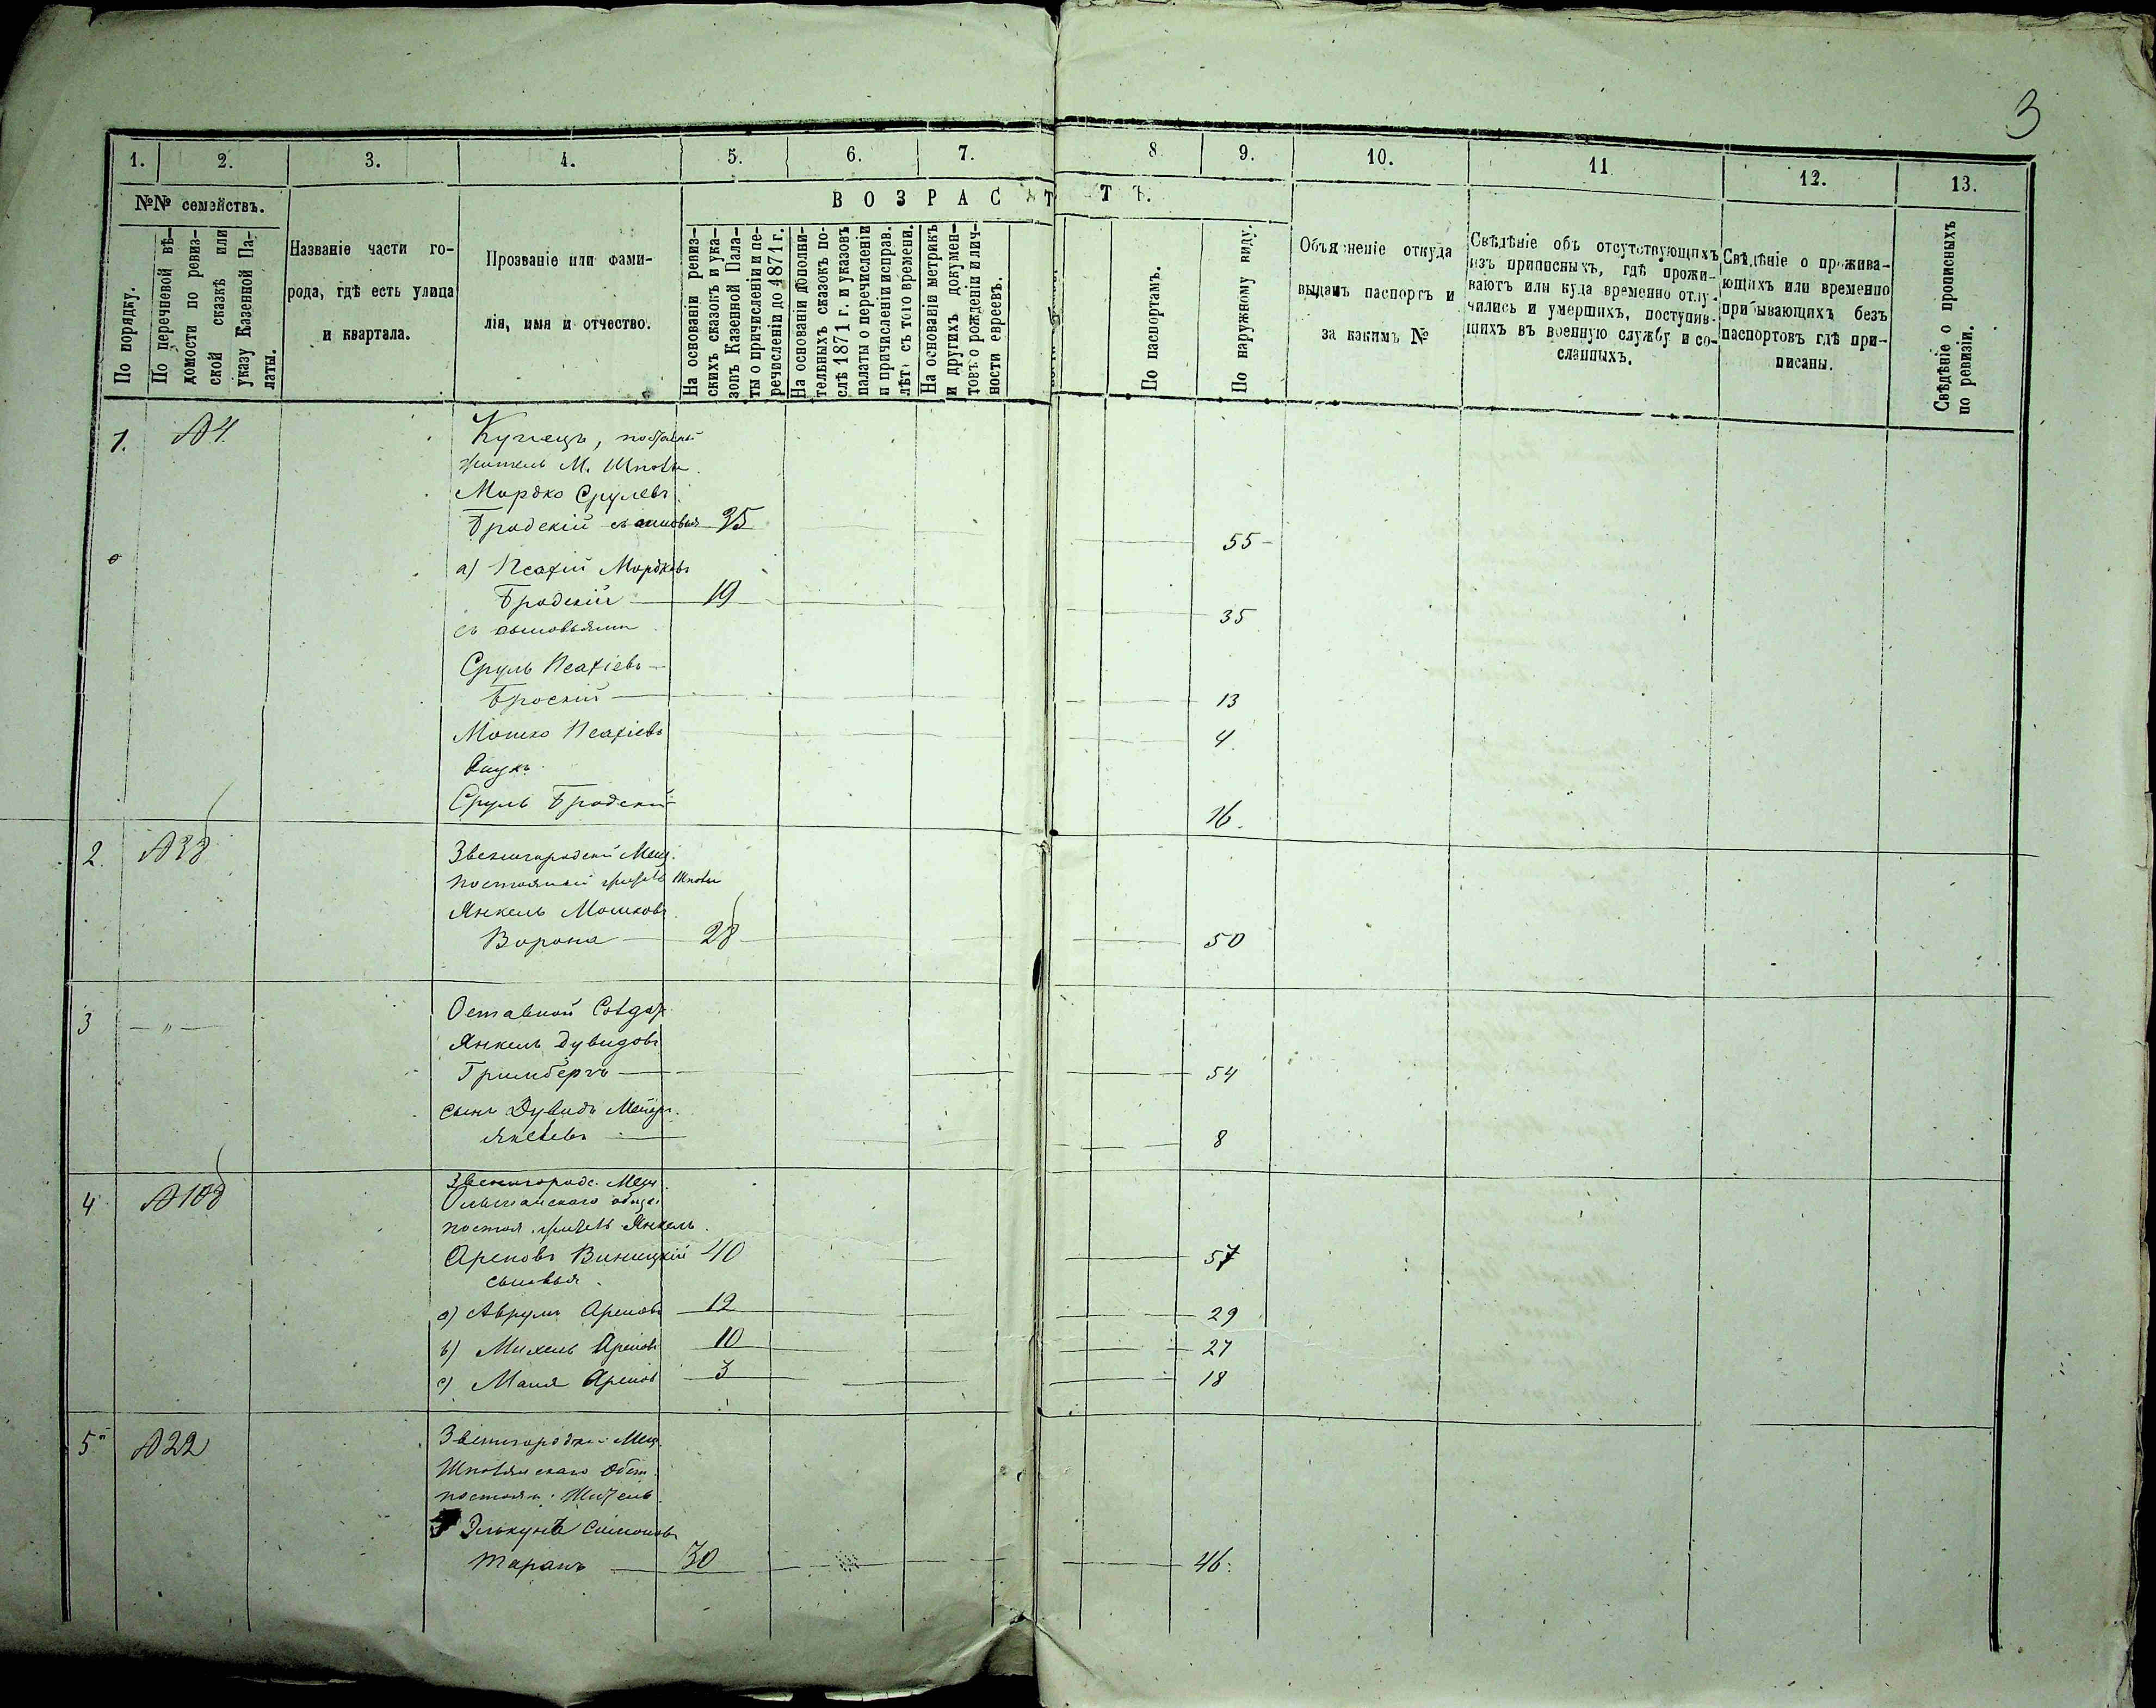 3
1. 2. 3. 4. 5. 6. 7. 8. 9. 10. 11 12. 13.
№№ семействъ.
По порядку.
По перечневой вѣ-
домости по ревиз-
ской сказкѣ или
указу Казенной Па-
латы.
Названіе части го-
рода, гдѣ есть улица
и квартала.
Прозваніе или фами-
лія, имя и отчество.
ВОЗРАСТЪ.
На основаніи ревиз-
скихъ сказокъ и ука-
зовъ Казенной Пала-
ты о причисленіи и пе-
речисленіи до 1871 г.
На основаніи дополни-
тельныхъ сказокъ по-
слѣ 1871 г. и указовъ
палаты о перечисленіи
и причисленіи исправ.
лѣтъ съ того времени.
На основаніи метрикъ
и другихъ докумен-
товъ о рожденіи и лич-
ности евреевъ.
По паспортамъ.
По наружному виду.
Объясненіе откуда
выданъ паспортъ и
за какимъ №
Свѣдѣніе объ отсутствующихъ
изъ приписныхъ, гдѣ прожи-
ваютъ или куда временно отлу-
чились и умершихъ, поступив-
шихъ въ военную службу и со-
сланныхъ.
Свѣдѣніе о прожива-
ющихъ или временно
прибывающихъ безъ
паспортовъ гдѣ при-
писаны.
Свѣдѣніе о прописныхъ
по ревизіи.
1. №4. Купецъ,
житель М. Шпола
Мордко Срулевъ
Бродскій съ сыновья 35 55
а) Псахій Мордковъ
Бродскій 19 35
съ сыновьями
Сруль Псахіевъ
Броскій 13
Мошко Псахіевъ 4
Внукъ
Сруль Бродскій 16.
2. №38 Звенигородскій Мещ.
постоянный Шполы
Янкель Мошковъ
Ворона 28 50
3 — „ — Оставной Солдат
Янкель Дувидовъ
Гримбергъ 54
сынъ Дувидъ Мейеръ
Янкелевъ 8
4 №108 Звенигородс. Мещ.
Ольшанскаго общес
постоя. Янкель
Ареновъ Виницкій 40 57
сыновья
а) Аврумъ Ареновъ 12 29
b) Михель Ареновъ 10 27
с) Маня Ареновъ 3 18
5 №22 Звенигородскі Мещ.
Шполянскаго Общ.
постоян. Житель
Элькунъ Симоновъ
Таранъ 30 46.